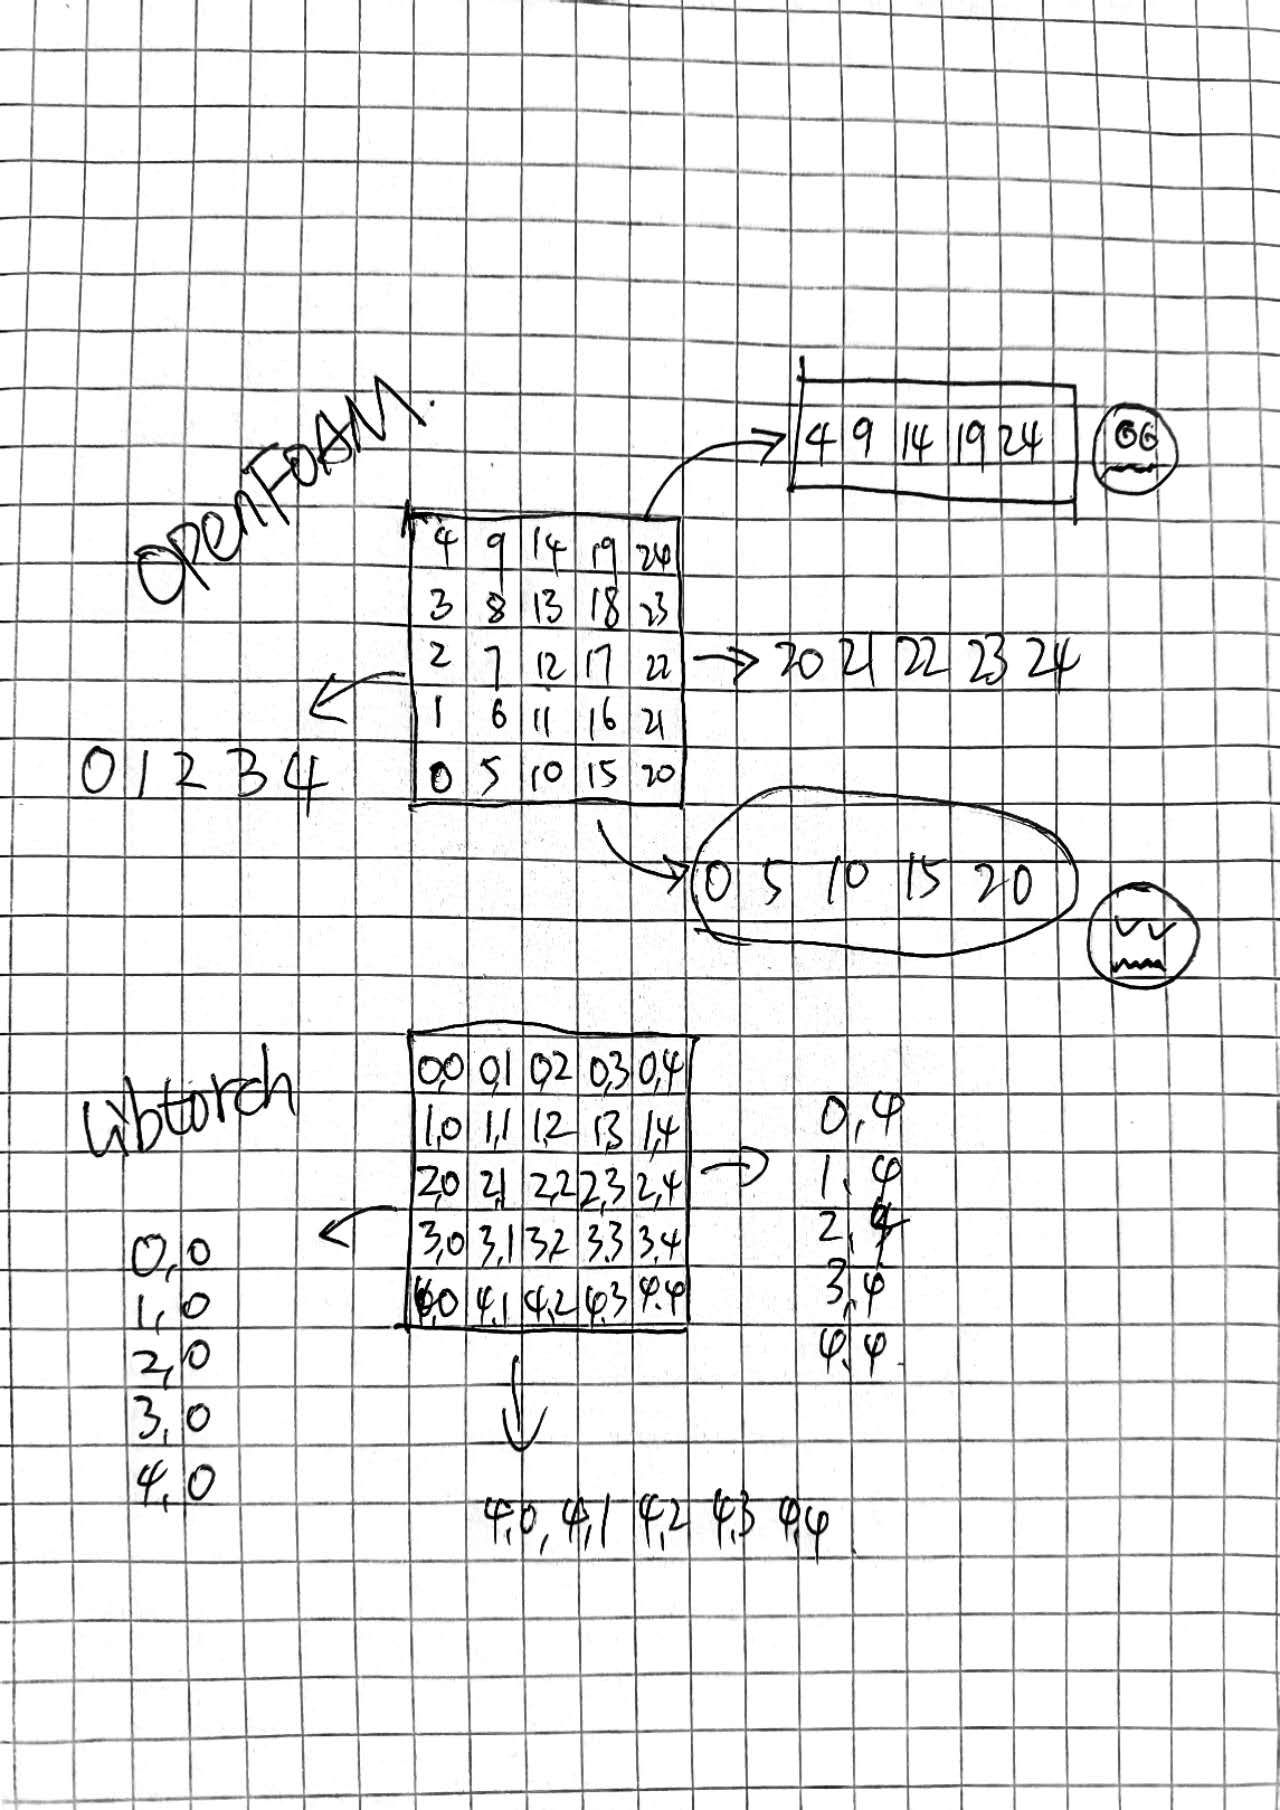 OpenFOAM.
4 9 14 19 24
4 9 14 19 24
3 8 13 18 23
2 7 12 17 22
20 21 22 23 24
1 6 11 16 21
0 1 2 3 4
0 5 10 15 20
0 5 10 15 20
Libtorch
0,0 0,1 0,2 0,3 0,4
1,0 1,1 1,2 1,3 1,4
2,0 2,1 2,2 2,3 2,4
3,0 3,1 3,2 3.3 3,4
4,0 4,1 4,2 4,3 4.4
0,4
1,4
2,4
3,4
4.4
0,0
1,0
2,0
3,0
4,0
4,0, 4,1 4,2 4,3 4,4